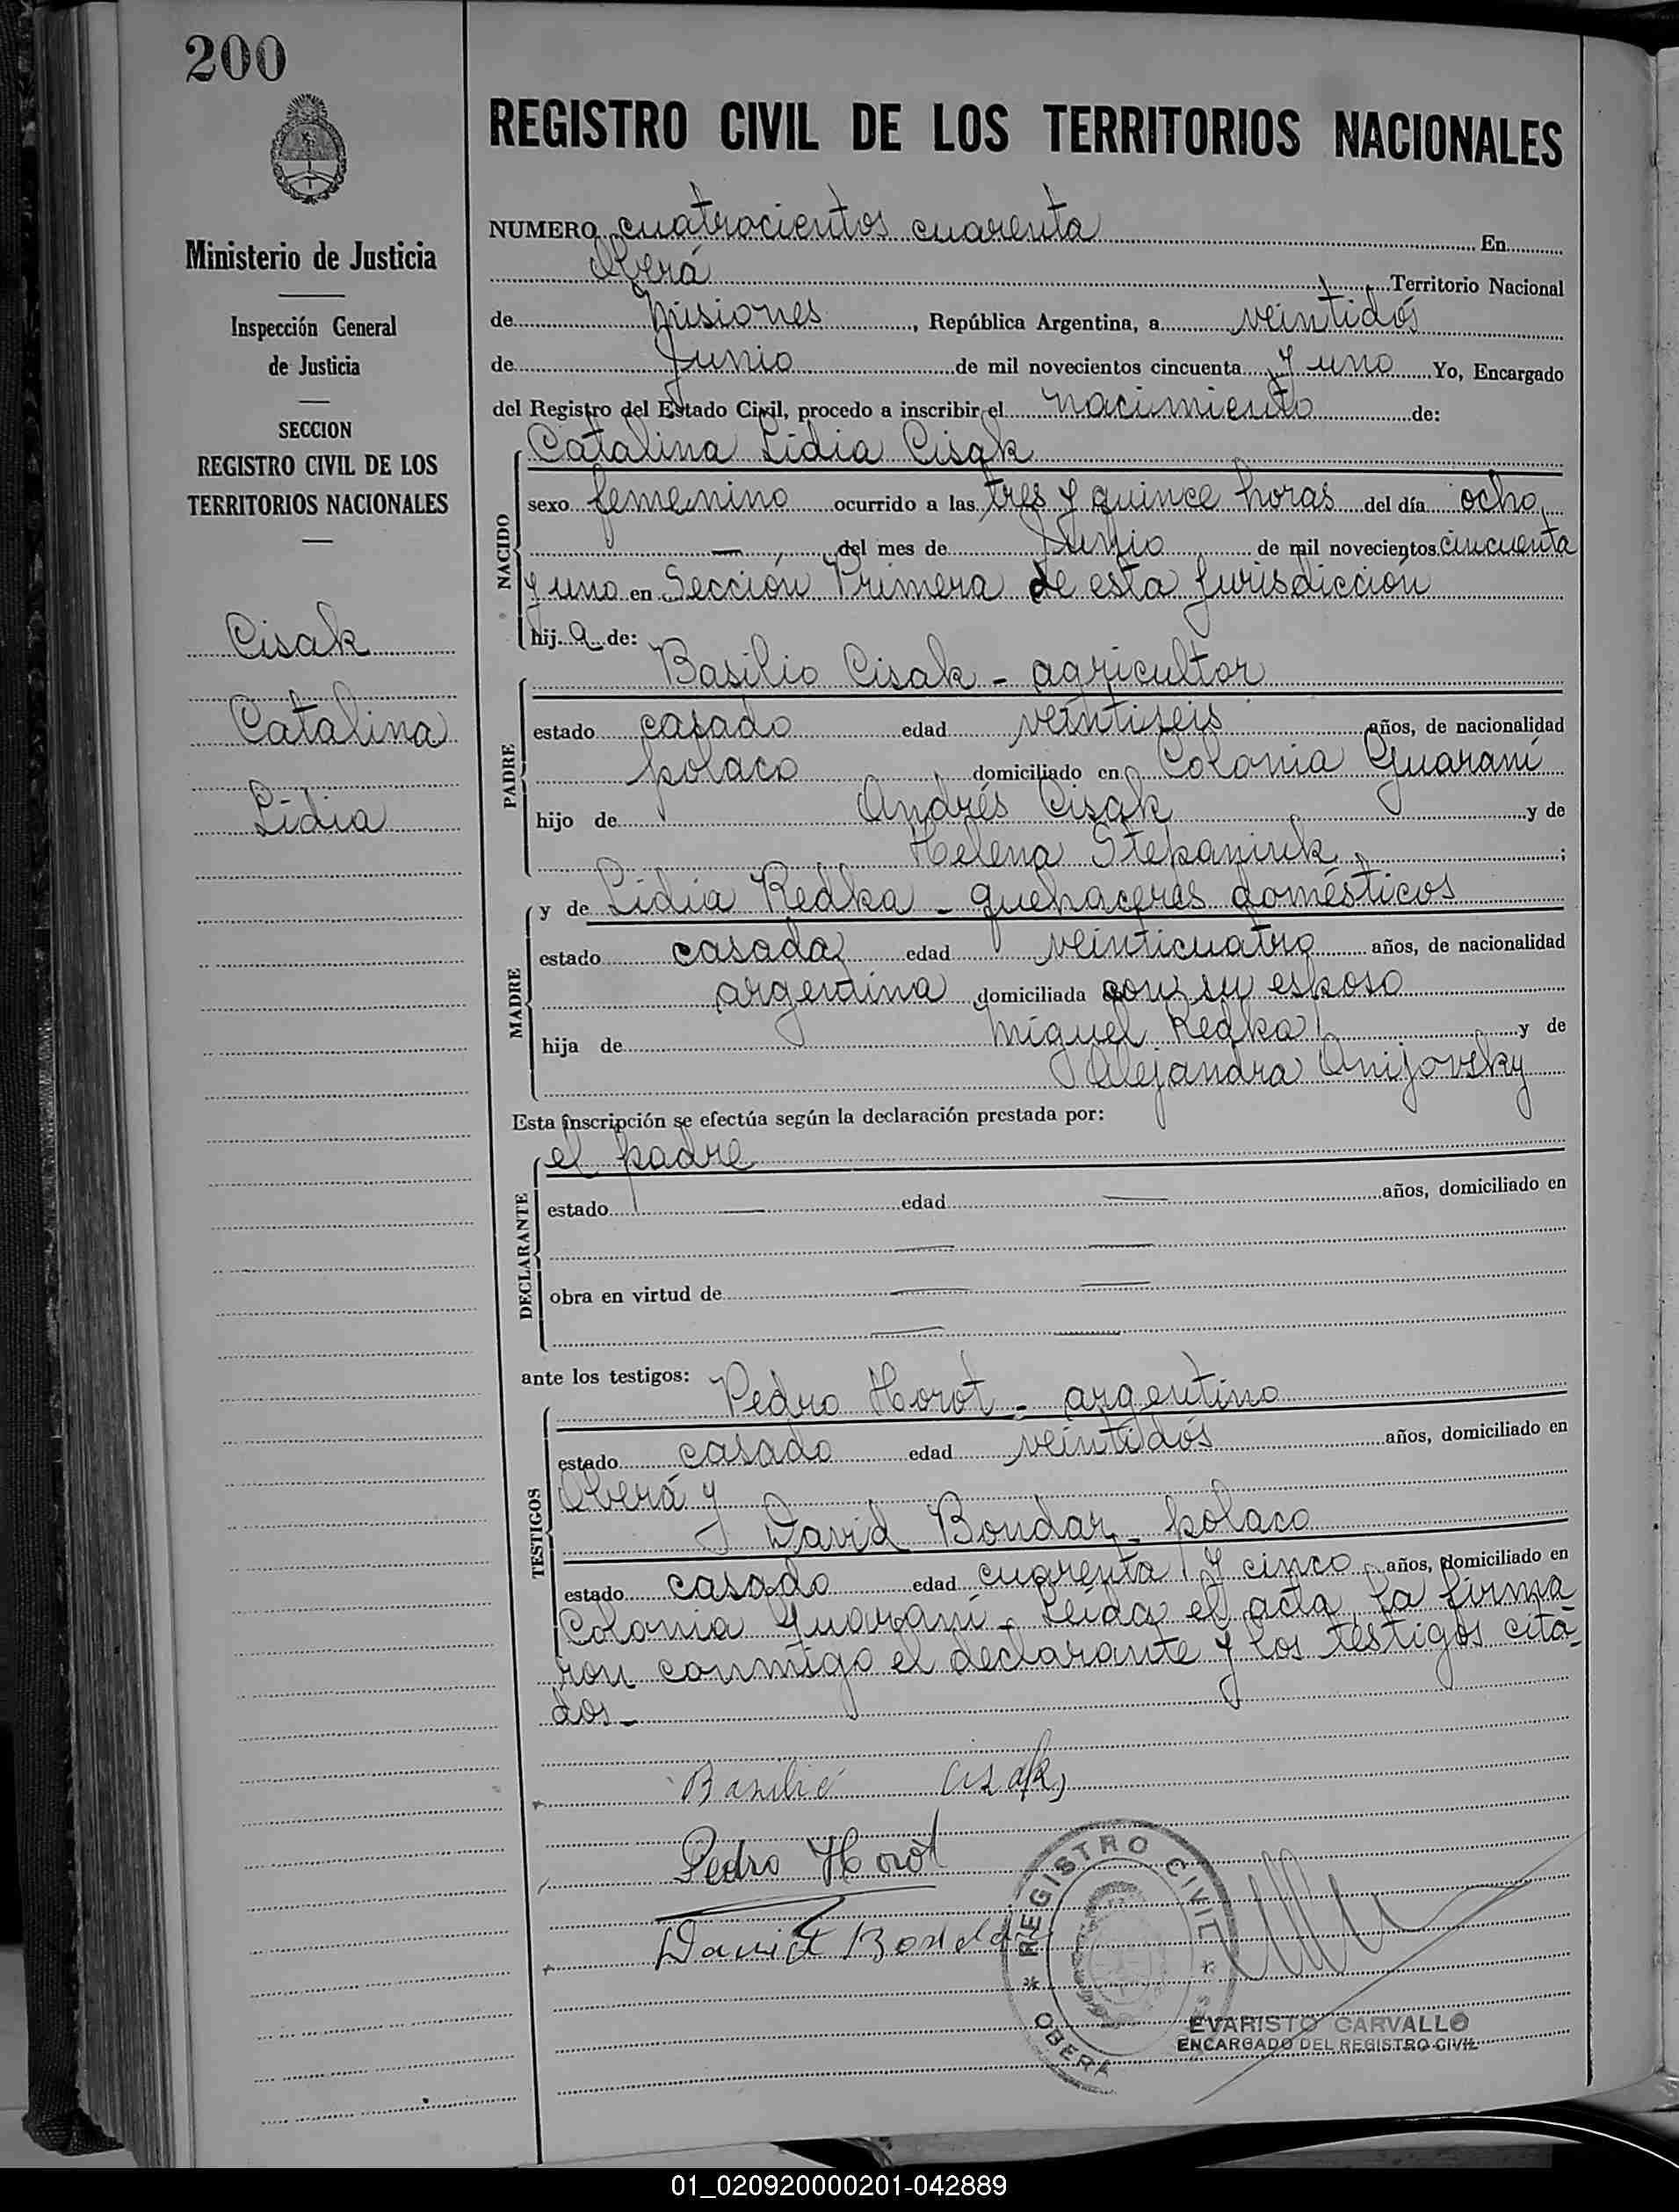 200
Ministerio de Justicia
Inspección General
de Justicia
SECCION
REGISTRO CIVIL DE LOS
TERRITORIOS NACIONALES
Cisak
Catalina
Lidia
REGISTRO CIVIL DE LOS TERRITORIOS NACIONALES
NUMERO cuatrocientos cuarenta En
Oberá Territorio Nacional
de Misiones, República Argentina, a veintidós
de Junio de mil novecientos cincuenta y uno Yo, Encargado
del Registro del Estado Civil, procedo a inscribir el nacimiento de:
Catalina Lidia Cisak
NACIDO
sexo femenino ocurrido a las tres y quince horas del día ocho
— del mes de Junio de mil novecientos cincuenta
y uno en Sección Primera de esta Jurisdicción
hija de:
Basilio Cisak - agricultor
PADRE
estado casado edad veintiseis años, de nacionalidad
polaco domiciliado en Colonia Guaraní
hijo de Andrés Cisak y de
Helena Stepaniuk;
y de Lidia Redka - quehaceres domésticos
MADRE
estado casada edad veinticuatro años, de nacionalidad
argentina domiciliada con su esposo
hija de Miguel Redka y de
Alejandra Onijovsky
Esta inscripción se efectúa según la declaración prestada por:
el padre
DECLARANTE
estado — edad — años, domiciliado en
— —
obra en virtud de — —
— —
ante los testigos:
Pedro Horot - argentino
TESTIGOS
estado casado edad veintidós años, domiciliado en
Oberá y
David Bondar - polaco
estado casado edad cuarenta y cinco años, domiciliado en
Colonia Guaraní - Leída el acta, la firma
ron conmigo el declarante y los testigos cita-
dos -
Basilio Cisak
Pedro Horot
David Bondar
REGISTRO CIVIL
OBERA
EVARISTO CARVALLO
ENCARGADO DEL REGISTRO CIVIL
01_020920000201-042889